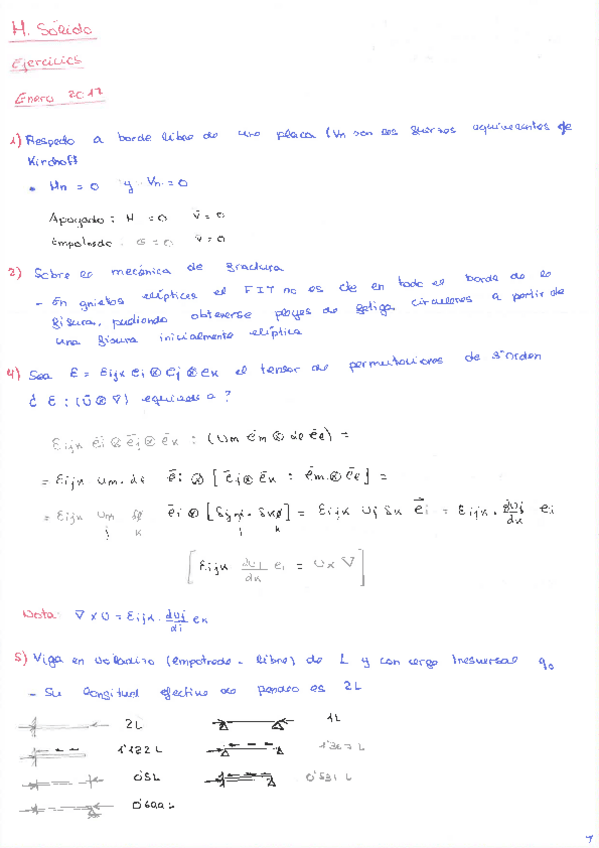 M. Sólido
Ejercicios
Enero 2017
1) Respecto a borde libre de una placa (Vn son las fuerzas equivalentes de
Kirchoff
• Mn = 0 y Vn = 0
Apoyado: M = 0 v̄ = 0
Empotrado: θ = 0 v̄ = 0
2) Sobre la mecánica de fractura
- En grietas elípticas el FIT no es cte en todo el borde de la
fisura, pudiendo obtenerse playas de fatiga circulares a partir de
una fisura inicialmente elíptica
4) Sea E = Eijk ei ⊗ ej ⊗ ek el tensor de permutaciones de 3er orden
¿ E : (Ū ⊗ ∇) equivale a ?
Eijk ēi ⊗ ēj ⊗ ēk : (um ēm ⊗ de ēe) =
= Eijk um. de ēi ⊗ [ēj ⊗ ēk : ēm ⊗ ēe] =
= Eijk um ēi ⊗ [δjm . δke] = Eijk Uj δk ēi = Eijk . duj/dk ei
j k j k
[Eijk duj/dk ei = U x ∇]
Nota: ∇ x U = Eijk . duj/di ek
5) Viga en voladizo (empotrada - libre) de L y con carga transversal q0
- Su longitud efectiva de pandeo es 2L
2L 1L
1'122 L
0'5L 0'531 L